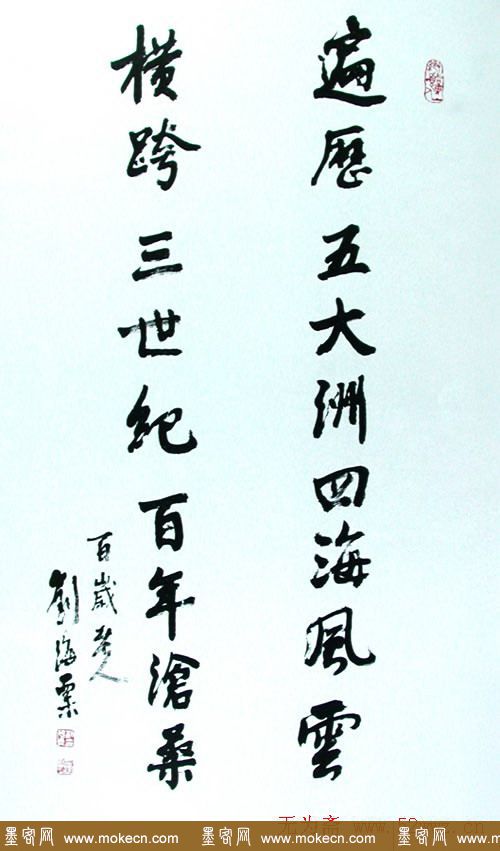 遍歷五大洲四海風雲
橫跨三世紀百年滄桑
百歲老人
劉海粟
无为斋 www.59wz.cn
墨客网 www.mokecn.com 墨客网 www.mokecn.com 墨客网 www.mokecn.com